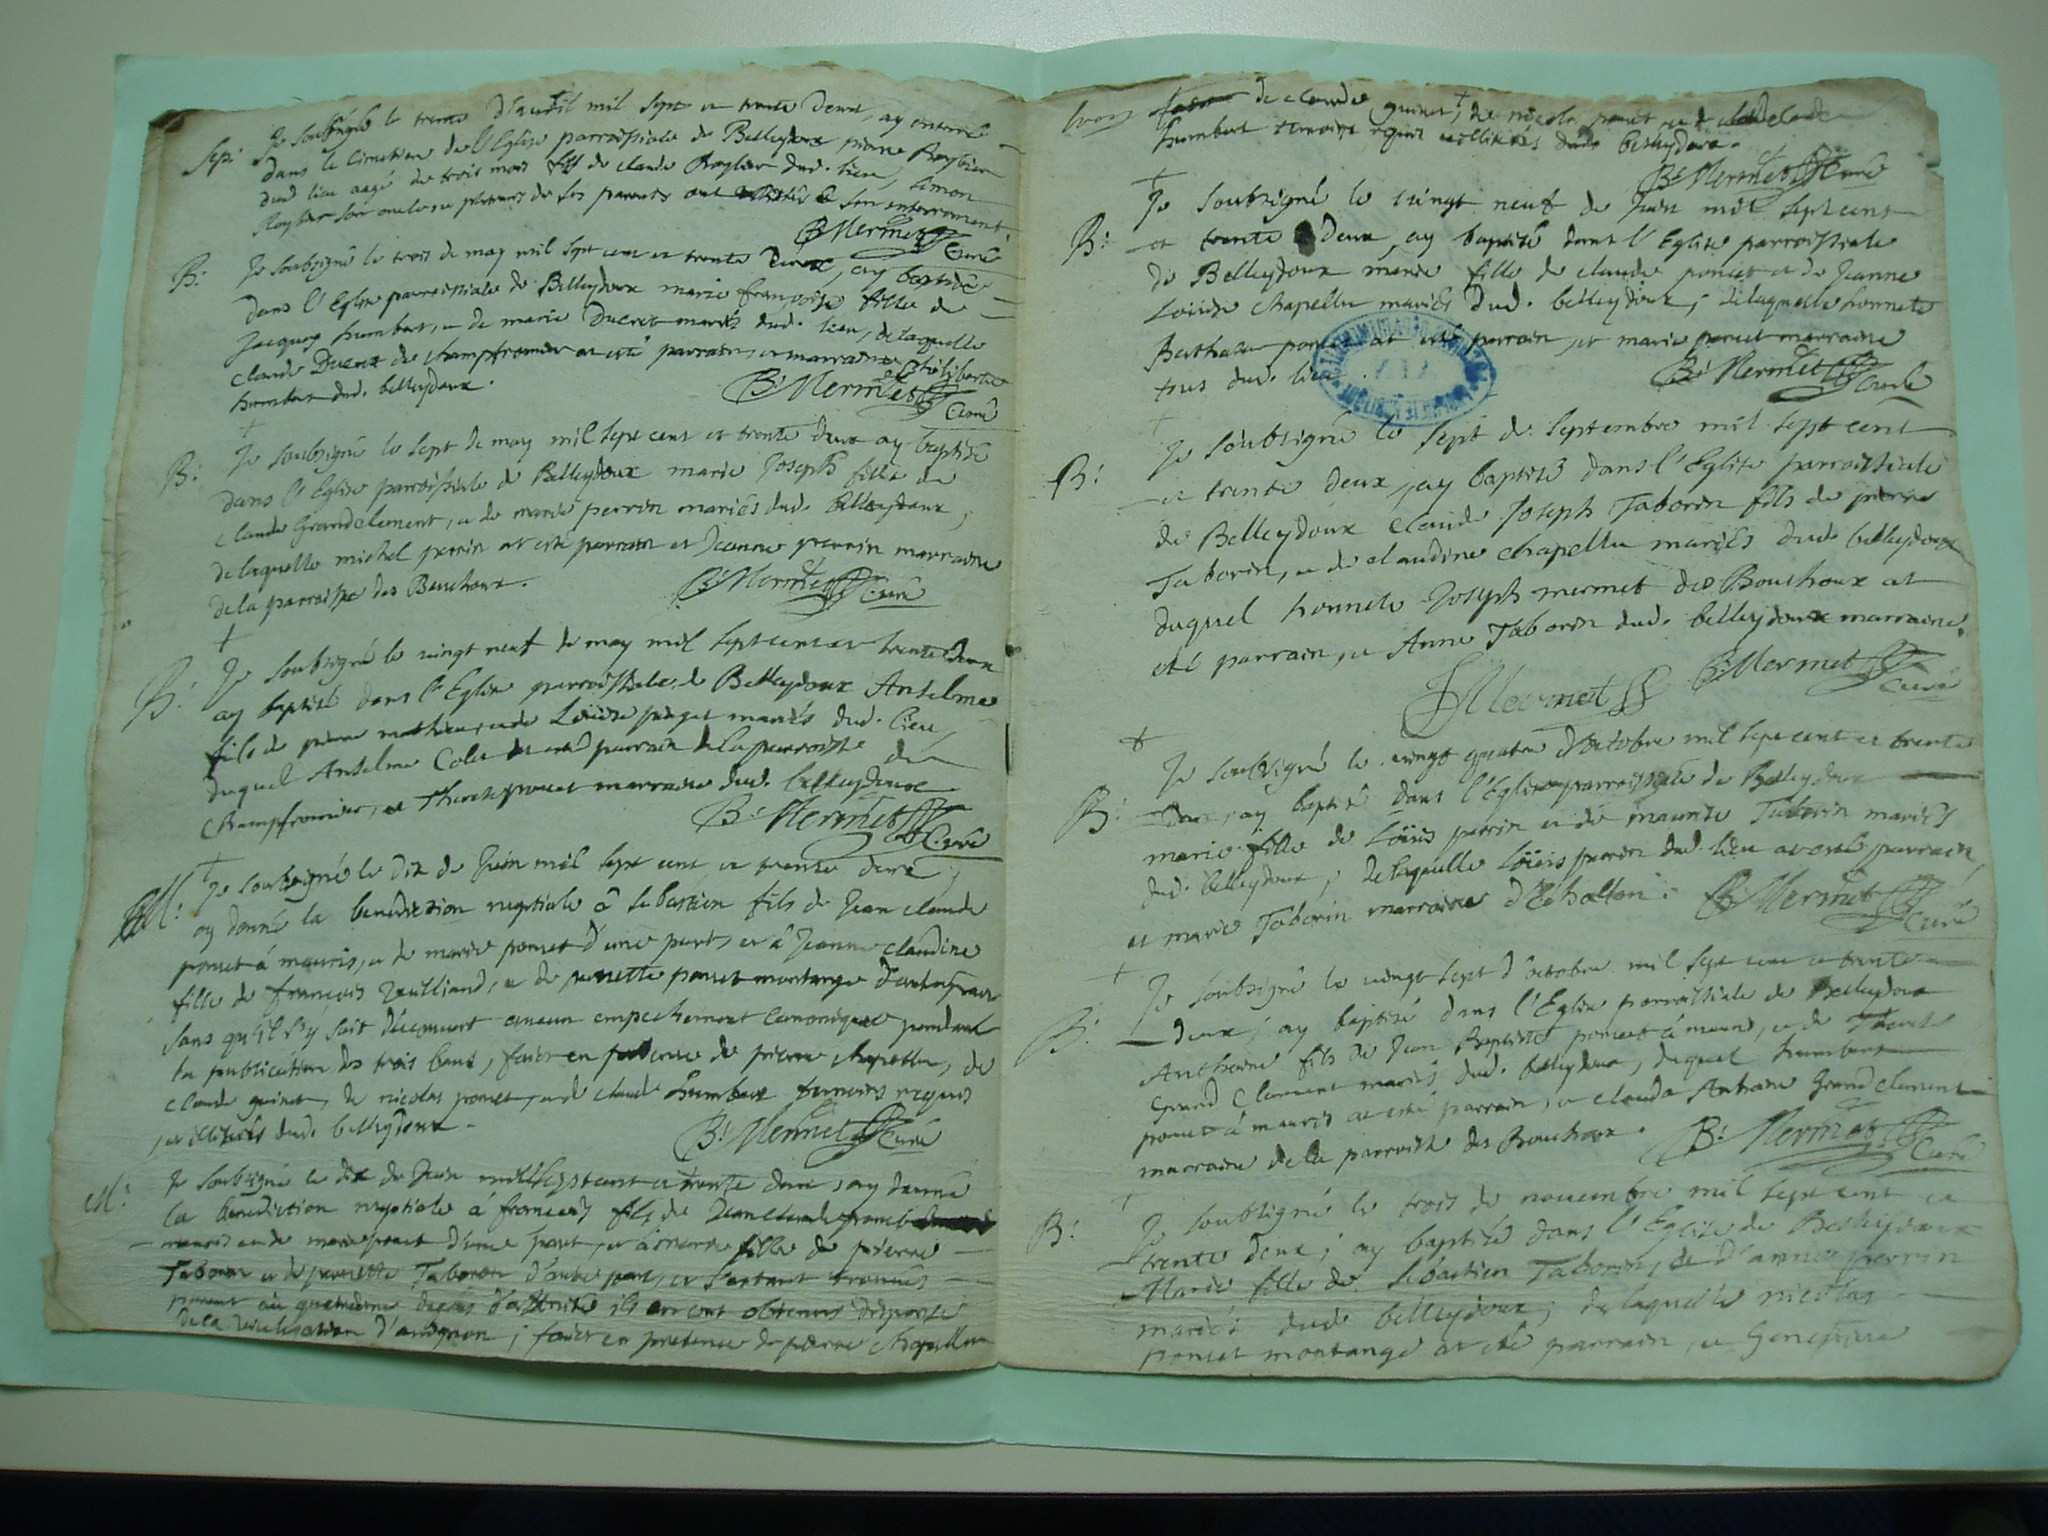 Sep: Je soubsigné le trente d'avril mil sept et trente deux, ay enterré
dans le cimetiere de l'Eglise parroissiale de Belleydoux pierre
dud. lieu aagé de trois mois fils de claude dud. lieu, simon
son oncle et plusieurs de ses parents ont assistés a son enterrement.
B: Mermet Curé
B: Je soubsigné le trois de may mil sept cent et trente deux, ay baptisé
dans l'Eglise parroissiale de Belleydoux marie françoise fille de
Jacques humbert, et de marie Ducret mariés dud. lieu, de laquelle
claude Ducret de champfromier at eté parrain, et marraine philiberte
humbert dud. belleydoux.
B: Mermet Curé
B: Je soubsigné le sept de may mil sept cent et trente deux ay baptisé
dans l'Eglise parroissiale de Belleydoux marie Joseph fille de
claude Grandclement, et de marie perrin mariés dud. belleydoux,
de laquelle michel perrin at eté parrain et Jeanne perrin marraine
de la parroisse des Bouchoux.
B: Mermet Curé
B: Je soubsigné le vingt neuf de may mil sept cent et trente deux
ay baptisé dans l'Eglise parroissiale de Belleydoux Anselme
fils de pierre mathieu, et de Loüise poncet mariés dud. lieu,
duquel Anselme at eté parrain de la parroisse de
champfromier, et Therese poncet marraine dud. belleydoux
B: Mermet Curé
M: Je soubsigné le dix de Juin mil sept cent et trente deux,
ay donné la benediction nuptiale â sebastien fils de Jean claude
poncet á mauris, et de marie poncet d'une part, et â Jeanne claudine
fille de françois, et de pernette poncet montange d'autre part
sans qu'il s'y soit découvert aucun empechement canonique pendant
la publication des trois bans, faict en presence de pierre chapellu, de
claude guinet, de nicolas poncet, et de claude humbert temoins requis
et illiterés dud. belleydoux.
B: Mermet Curé
M: Je soubsigné le dix de Juin mil sept cent et trente deux, ay donné
la benediction nuptiale á françois fils de Jean claude poncet
mauris et de marie poncet d'une part, et â marie fille de pierre
Taborin et de pernette Taborin d'autre part, et s'estant trouvés
parent au quatrieme degrés d'affinité ils en ont obtenus dispense
de la vicelegation d'avignon; faict en presence de pierre chapellu
de claude guinet, de nicolas poncet et de claude
humbert temoins requis et illiterés dud. belleydoux.
B: Mermet Curé
B: Je soubsigné le vingt neuf de Juin mil sept cent
et trente deux, ay baptisé dans l'Eglise parroissiale
de Belleydoux marie fille de claude poncet et de Jeanne
Loüise chapellu mariés dud. belleydoux, de laquelle honnete
Berthazar poncet at eté parrain, et marie poncet marraine
tous dud. lieu.
B: Mermet Curé
B: Je soubsigné le sept de septembre mil sept cent
et trente deux, ay baptisé dans l'Eglise parroissiale
de Belleydoux claude Joseph Taborin fils de pierre
Taborin, et de claudine chapellu mariés dud. belleydoux
duquel honnete Joseph mermet des Bouchoux at
eté parrain, et Anne Taborin dud. belleydoux marraine.
J Mermet B: Mermet Curé
B: Je soubsigné le vingt quatre d'octobre mil sept cent et trente
deux, ay baptisé dans l'Eglise parroissiale de Belleydoux
marie fille de Loüis perrin et de maurise Taborin mariés
dud. belleydoux, de laquelle Loüis perrin dud. lieu at eté parrain,
et marie Taborin marraine d'Echallon.
B: Mermet Curé
B: Je soubsigné le vingt sept d'octobre mil sept cent et trente
deux, ay baptisé dans l'Eglise parroissiale de Belleydoux
Anthoine fils de Jean Baptiste poncet á mauris, et de
Grand Clement mariés dud. belleydoux, duquel humbert
poncet á mauris at eté parrain, et claude Antoine Grand clement
marraine de la parroisse des Bouchoux.
B: Mermet Curé
B: Je soubsigné le trois de novembre mil sept cent et
trente deux, ay baptisé dans l'Eglise de Belleydoux
Marie fille de sebastien Taborin, et d'anne perrin
mariés dud. belleydoux, de laquelle nicolas
poncet montange at eté parrain, et Genevieve